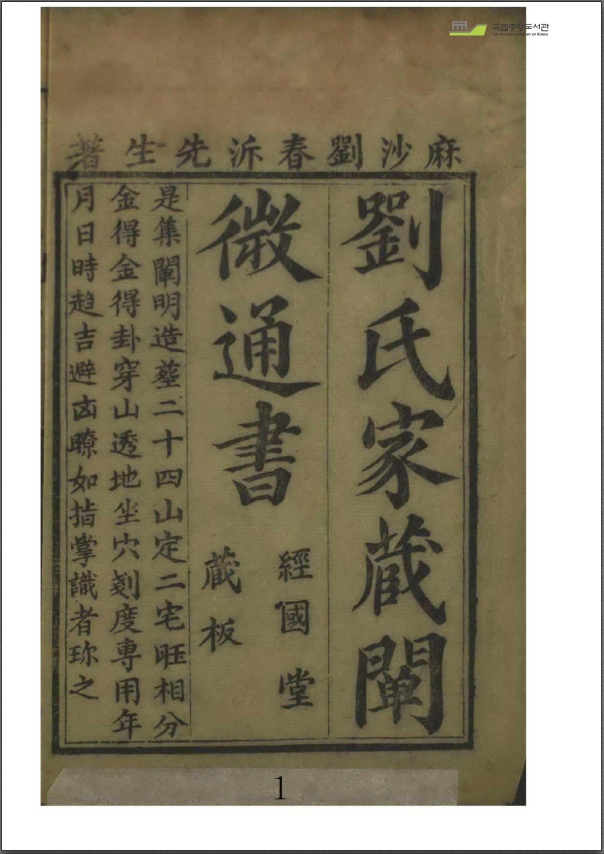 국립중앙도서관
THE NATIONAL LIBRARY OF KOREA
麻沙劉春泝先生著
劉氏家蔵闡
微通書
經國堂
蔵板
是集闡明造塟二十四山定二宅旺相分
金得金得卦穿山透地坐穴剡度專用年
月日時趋吉避凶瞭如指掌識者珎之
1